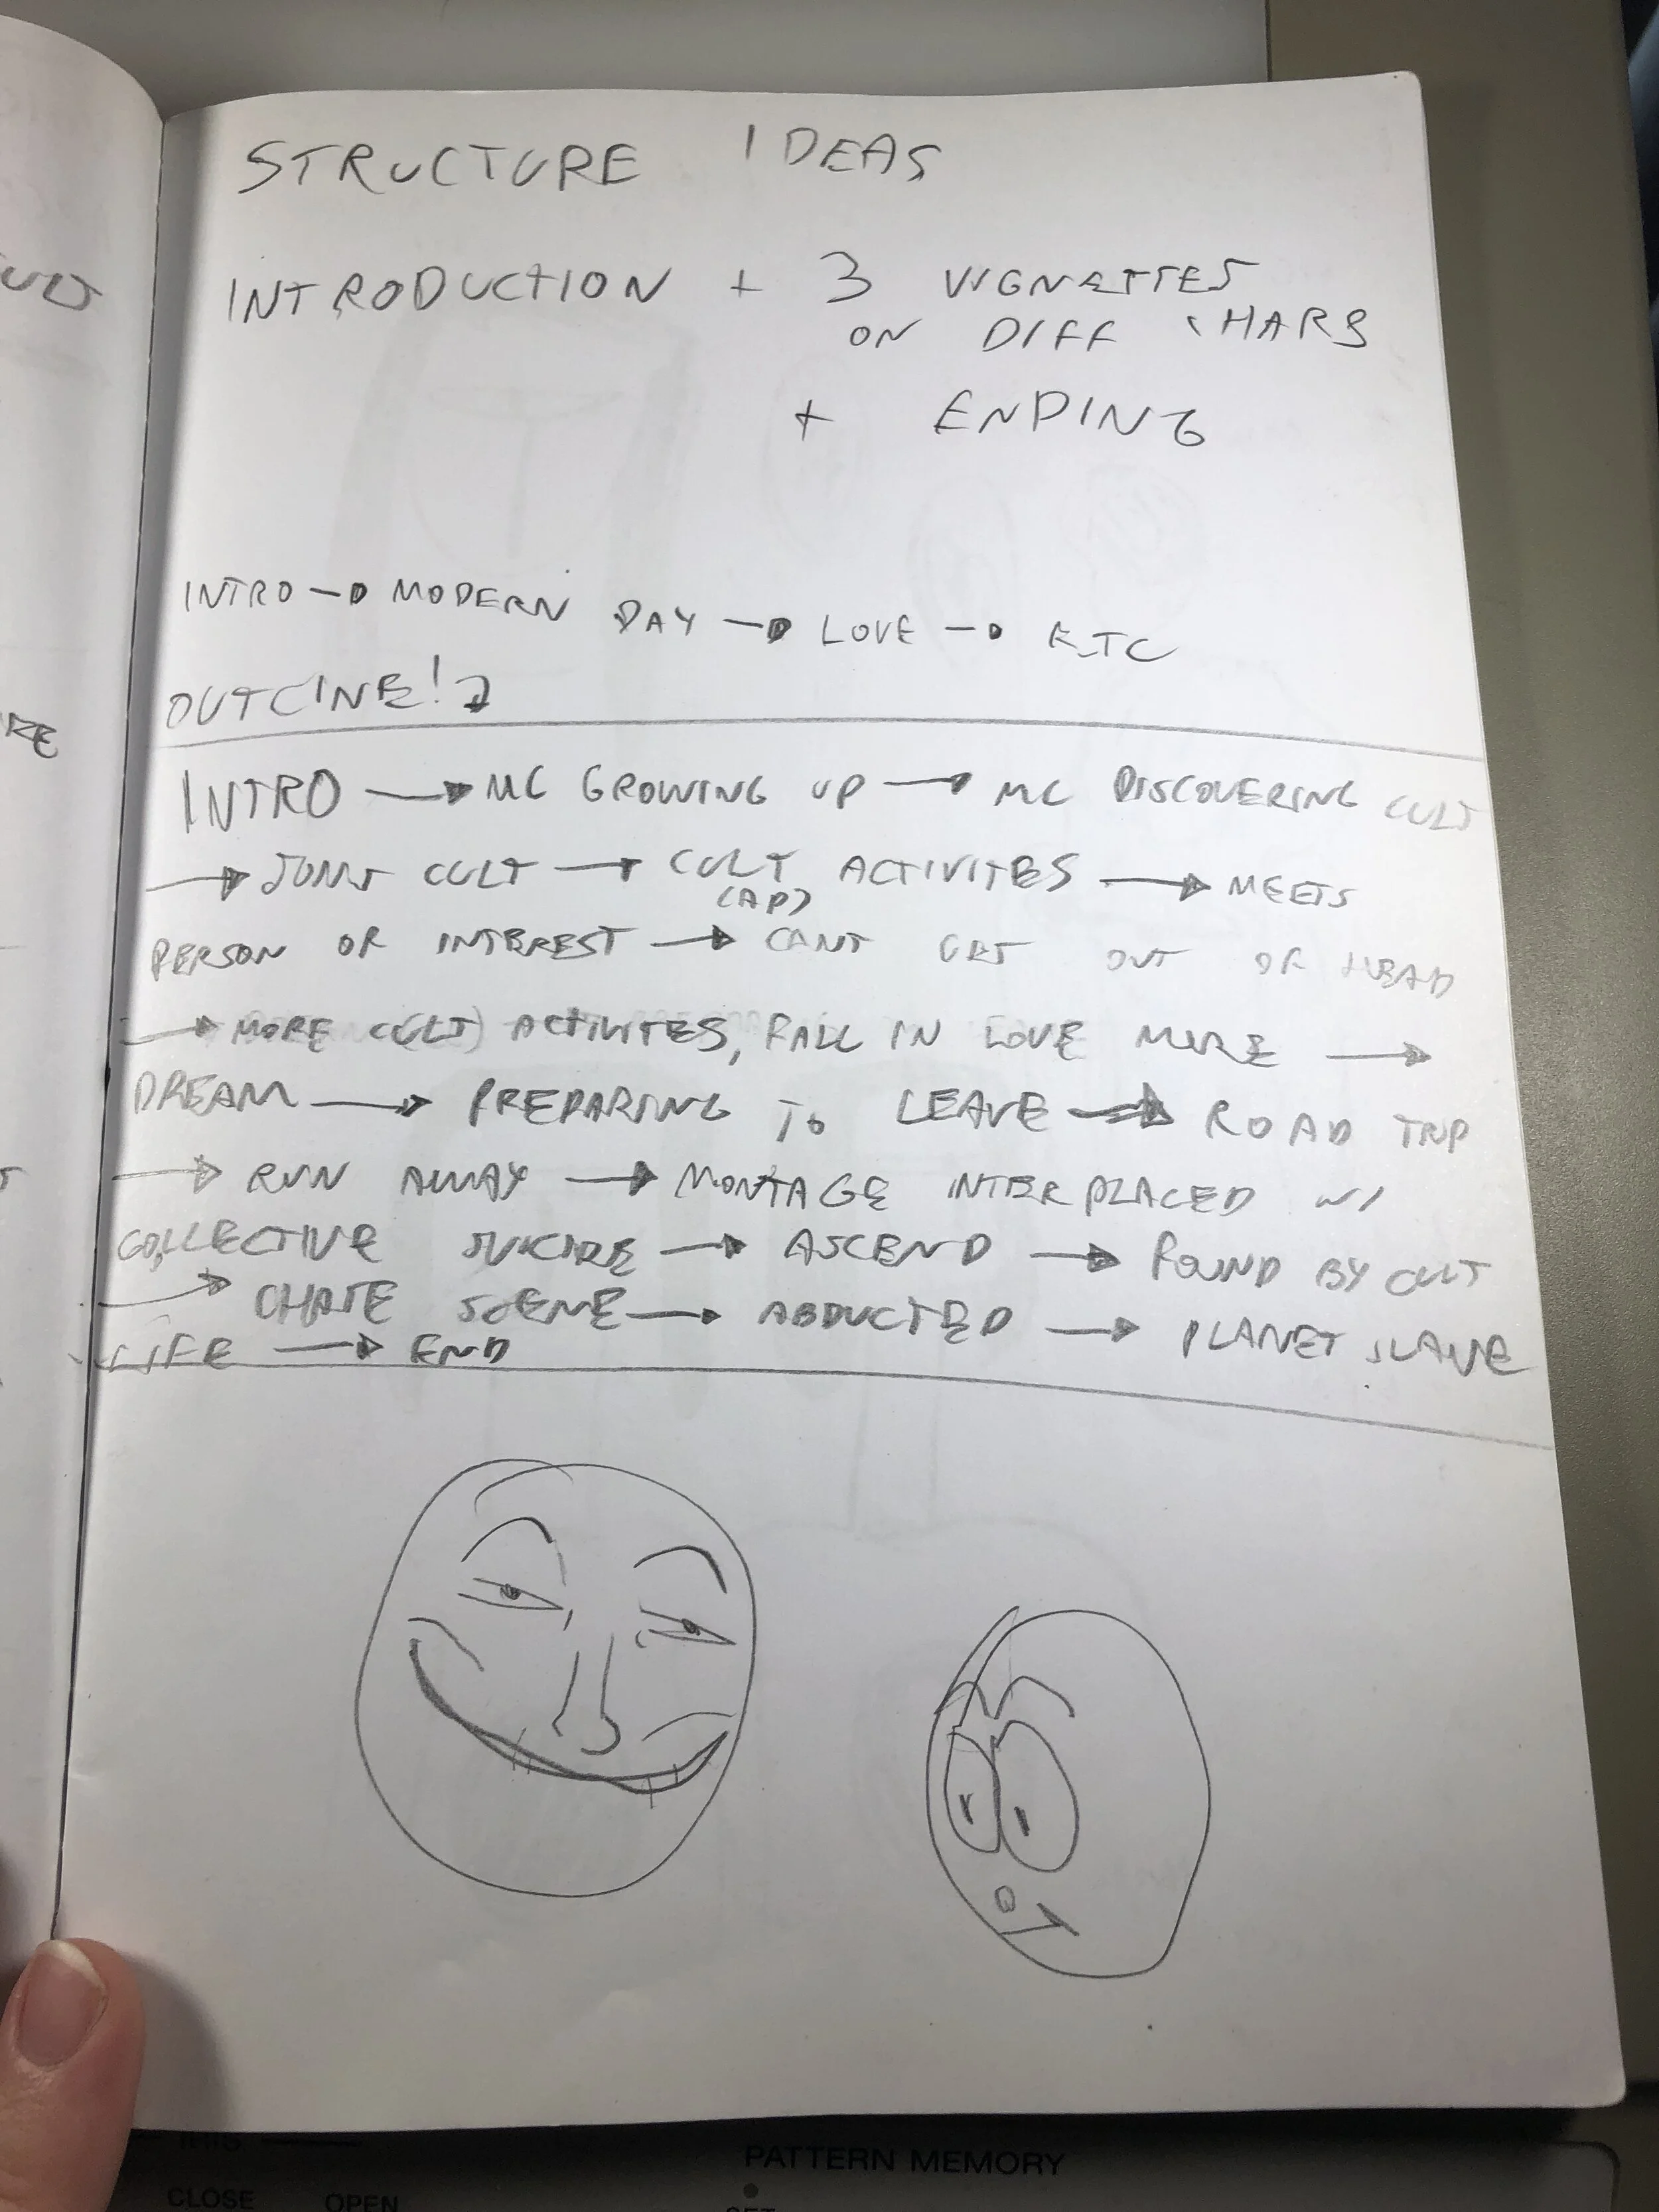 STRUCTURE IDEAS
INTRODUCTION + 3 VIGNETTES
ON DIFF CHARS
+ ENDING
INTRO → MODERN DAY → LOVE → ETC
OUTLINE!
INTRO → MC GROWING UP → MC DISCOVERING CULT
→ JOINS CULT → CULT ACTIVITES → MEETS
(AP)
PERSON OF INTEREST → CANT GET OUT OF HEAD
→ MORE CULT ACTIVITES, FALL IN LOVE MORE →
DREAM → PREPARING TO LEAVE → ROAD TRIP
→ RUN AWAY → MONTAGE INTERPLACED W/
COLLECTIVE SUICIDE → ASCEND → FOUND BY CULT
→ CHASE SCENE → ABDUCTED → PLANET SLAVE
LIFE → END
PATTERN MEMORY
CLOSE OPEN